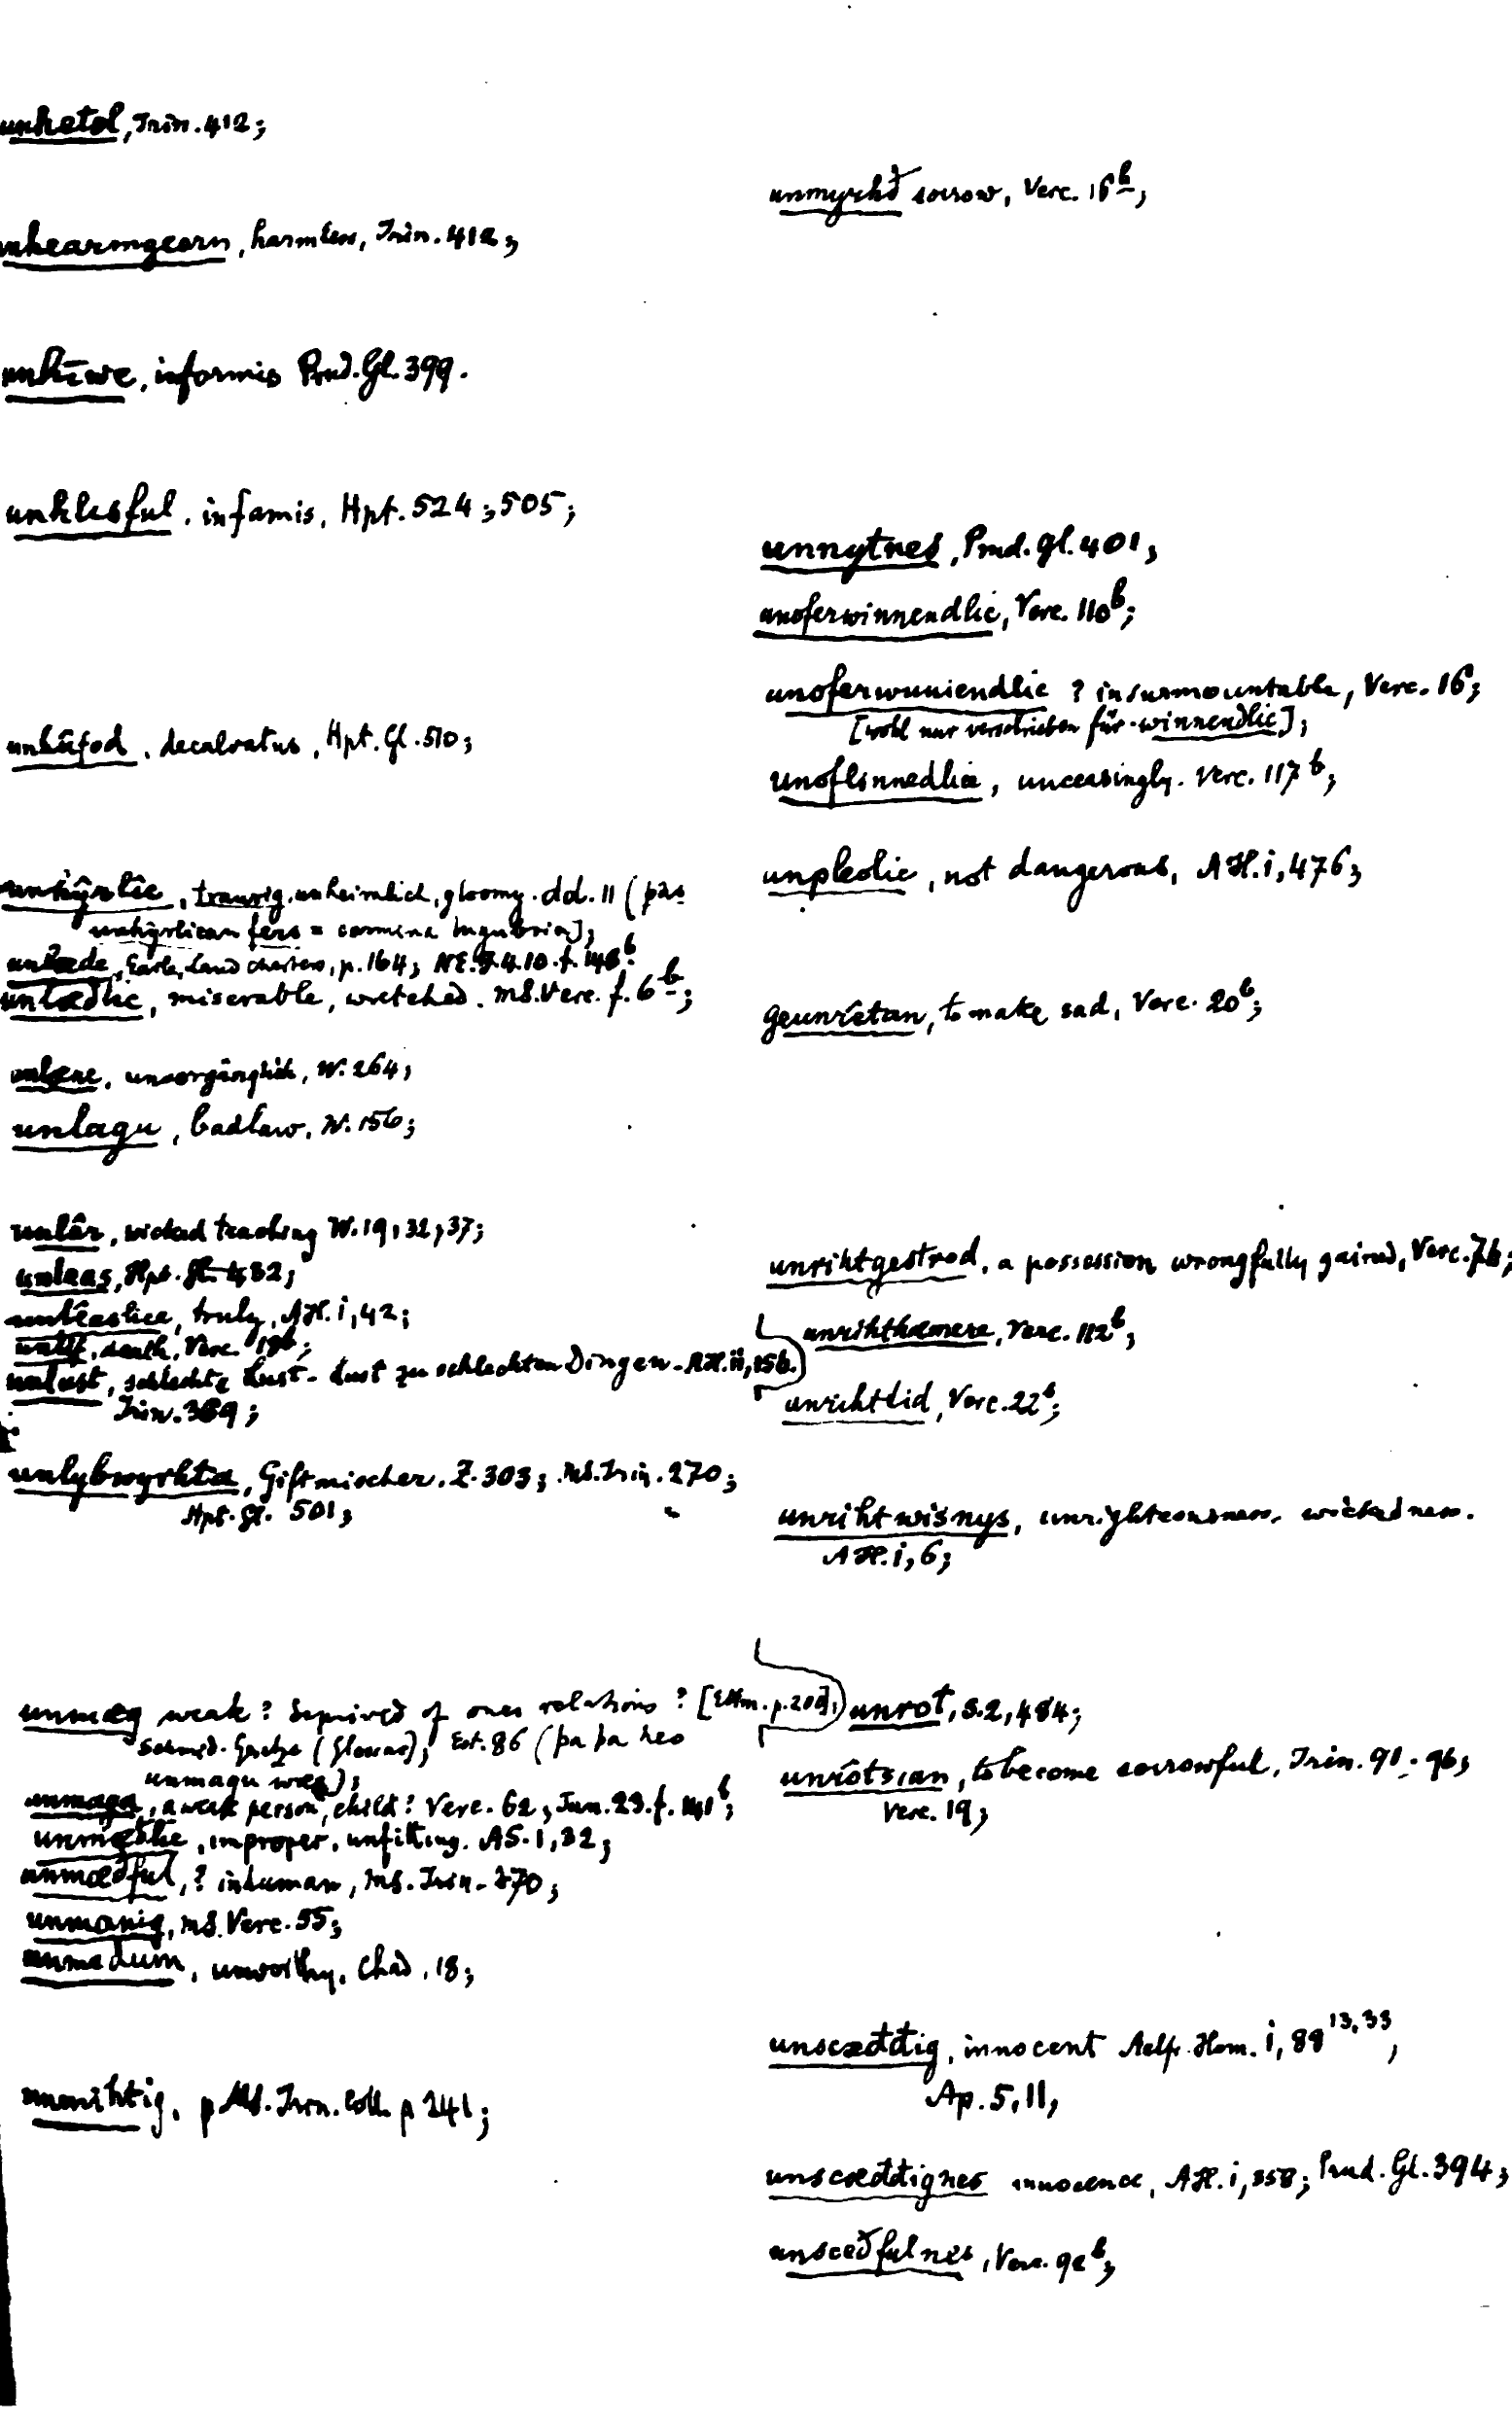 unhetol, Trin. 412;
unhearmgeorn, harmless, Trin. 412;
unhīwe, informis Prud. Gl. 399.
unhlisful, infamis, Hpt. 524; 505;
unhûfod, decalvatus, Hpt. Gl. 510;
unhŷrlic, traurig, unheimlich, gloomy. dd. 11 (þas
unhŷrlican fers = carmina lugubria);
unlæde, Earle, Land charters, p. 164; NE. F. 4. 10. f. 148b.
unlædlic, miserable, wretched. MS. Verc. f. 6b;
unlæne, unvergänglich, W. 264;
unlagu, bad law, W. 156;
unlâr, wicked teaching W. 19, 32, 37;
unleas, Hpt. Gl. 432;
unlêaslice, truly, AH. i, 42;
unlif, death, Verc.
unlust, schlechte Lust - Lust zu schlechten Dingen - AH. ii, 156.
Trin. 369;
unlybwyrhta, Giftmischer. Z. 303; MS. Trin. 270;
Hpt. Gl. 501;
unmæg weak? deprived of ones relations? [Ettm. p. 200];
Schmid. Gesetze (Glossar); Est. 86 (þa þa heo
unmagu wæs);
unmaga, a weak person, child? Verc. 62; Jun. 23. f. 141b;
unmæðlic, improper, unfitting. AS. 1, 32;
unmæðful, ? inhuman, MS. Trin. 270;
unmanig, MS. Verc. 55;
unmedum, unworthy, Chad. 18;
unmihtig, p MS. Trin. Coll. p 241;
unmyrhð sorrow, Verc. 16b;
unnytnes, Prud. Gl. 401;
unoferwinnendlic, Verc. 110b;
unoferwuniendlic ? insurmountable, Verc. 16;
[wohl nur verschrieben für -winnendlic];
unoflinnedlice, unceasingly. Verc. 117b;
unpleolic, not dangerous, AH. i, 476;
geunrêtan, to make sad, Verc. 20b;
unrihtgestrod, a possession wrongfully gained, Verc. 76;
unrihthæmere, Verc. 112b;
unrihtlid, Verc. 22b;
unrihtwisnys, unrighteousness, wickedness.
AH. i, 6;
unrot, S. 2, 484;
unrôtsian, to become sorrowful, Trin. 91 - 96;
Verc. 19;
unscæððig, innocent Aelfr. Hom. i, 88 13,33,
Ap. 5, 11,
unscæððignes innocence, AH. i, 358; Prud. Gl. 394;
unsceðfulnes, Verc. 92b;